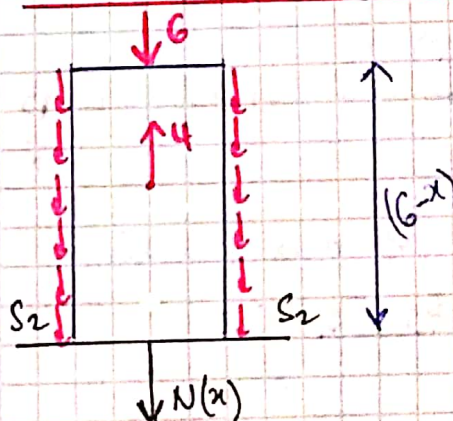 6
4
(6-x)
S₂ S₂
N(x)